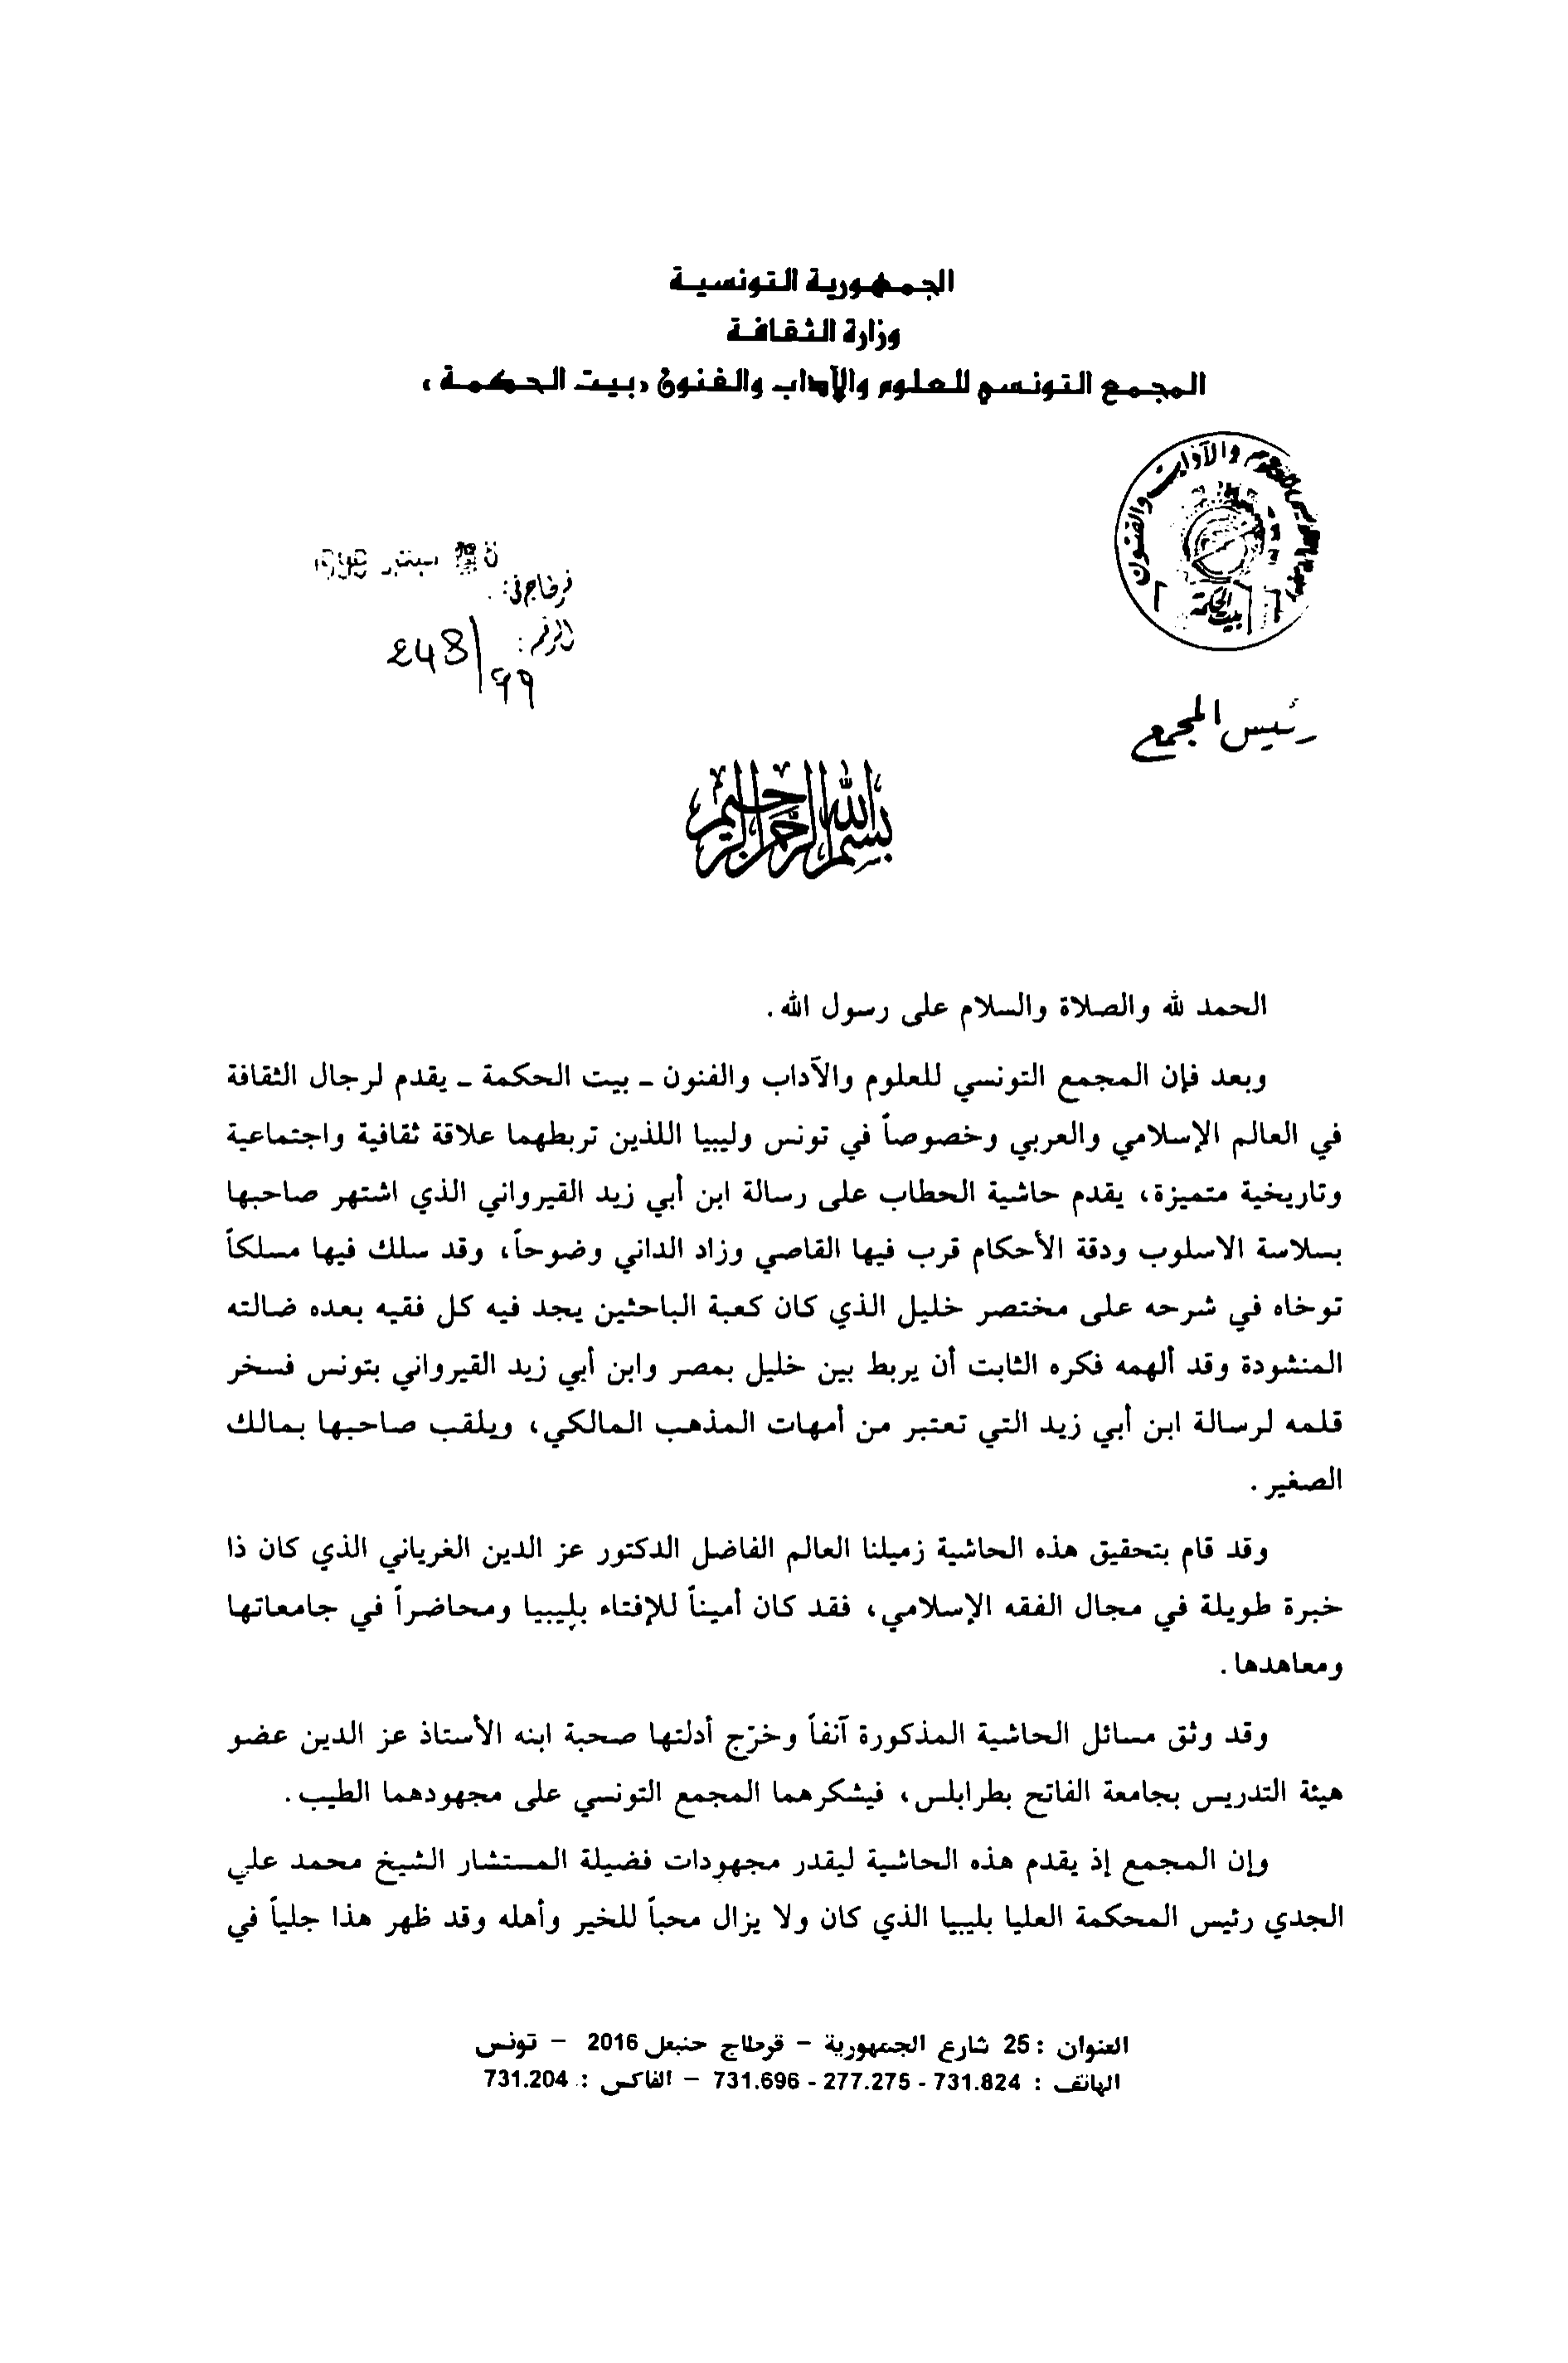 الجمهورية التونسية
وزارة الثقافة
المجمع التونسي للعلوم والآداب والفنون «بيت الحكمة»
والآداب والفنون
بيت الحكمة
سبتمبر
قرطاج في:
الرقم: 248/99
رئيس المجمع
بسم الله الرحمن الرحيم
الحمد لله والصلاة والسلام على رسول الله .
وبعد فإن المجمع التونسي للعلوم والآداب والفنون ـ بيت الحكمة ـ يقدم لرجال الثقافة
في العالم الإسلامي والعربي وخصوصاً في تونس وليبيا اللذين تربطهما علاقة ثقافية واجتماعية
وتاريخية متميزة، يقدم حاشية الحطاب على رسالة ابن أبي زيد القيرواني الذي اشتهر صاحبها
بسلاسة الاسلوب ودقة الأحكام قرب فيها القاصي وزاد الداني وضوحاً، وقد سلك فيها مسلكاً
توخاه في شرحه على مختصر خليل الذي كان كعبة الباحثين يجد فيه كل فقيه بعده ضالته
المنشودة وقد ألهمه فكره الثابت أن يربط بين خليل بمصر وابن أبي زيد القيرواني بتونس فسخر
قلمه لرسالة ابن أبي زيد التي تعتبر من أمهات المذهب المالكي، ويلقب صاحبها بمالك
الصغير .
وقد قام بتحقيق هذه الحاشية زميلنا العالم الفاضل الدكتور عز الدين الغرياني الذي كان ذا
خبرة طويلة في مجال الفقه الإسلامي، فقد كان أميناً للإفتاء بليبيا ومحاضراً في جامعاتها
ومعاهدها .
وقد وثق مسائل الحاشية المذكورة آنفاً وخرّج أدلتها صحبة ابنه الأستاذ عز الدين عضو
هيئة التدريس بجامعة الفاتح بطرابلس، فيشكرهما المجمع التونسي على مجهودهما الطيب .
وإن المجمع إذ يقدم هذه الحاشية ليقدر مجهودات فضيلة المستشار الشيخ محمد علي
الجدي رئيس المحكمة العليا بليبيا الذي كان ولا يزال محباً للخير وأهله وقد ظهر هذا جلياً في
العنوان : 25 شارع الجمهورية – قرطاج حنبعل 2016 – تونس
الهاتف : 731.824 - 277.275 - 731.696 – الفاكس : 731.204